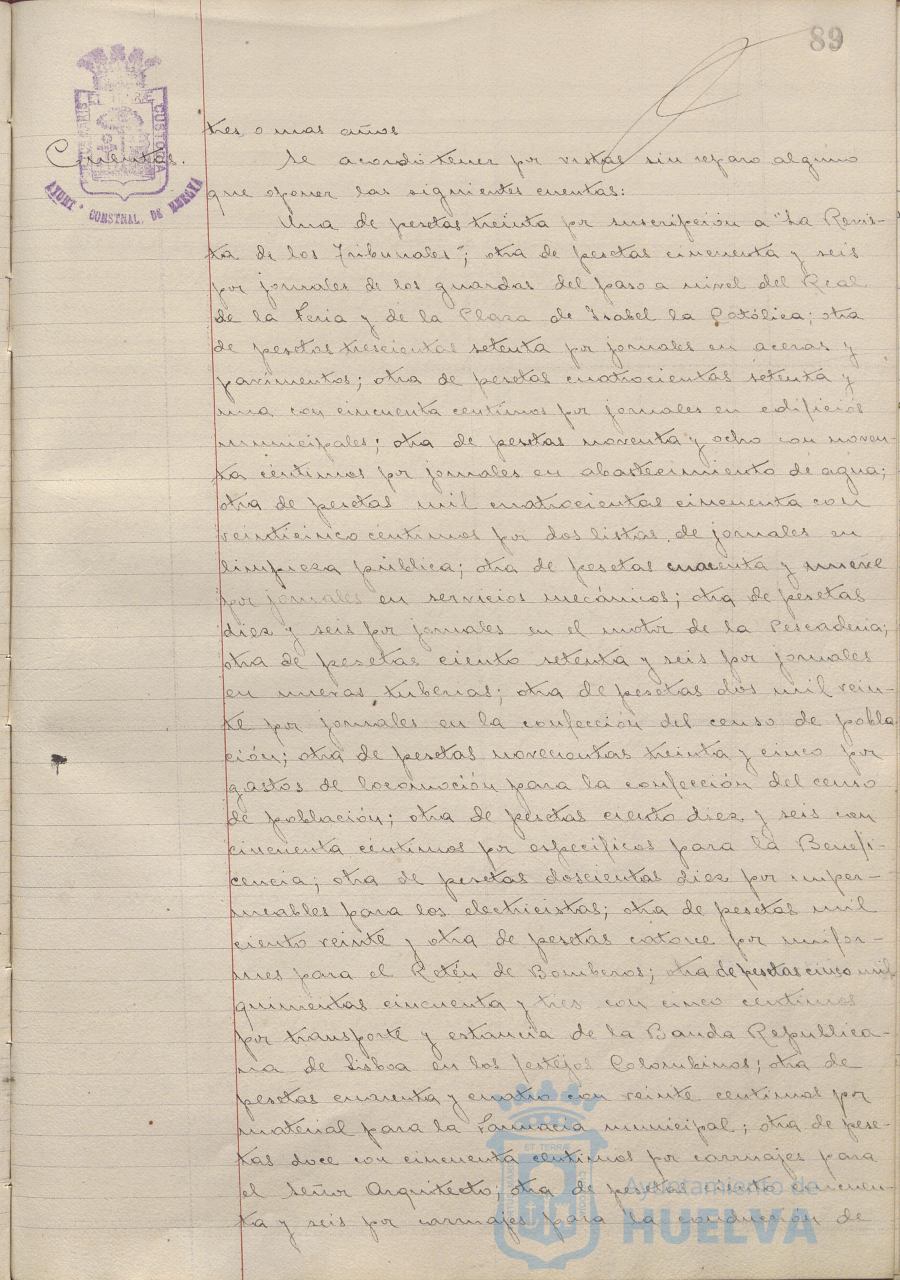 89
tres o mas años
Cuentas.
Se acordó tener por vistas sin reparo alguno
que oponer las siguientes cuentas:
Una de pesetas treinta por suscripción a "La Revis-
ta de los Tribunales"; otra de pesetas cincuenta y seis
por jornales de los guardas del paso a nivel del Real
de la Feria y de la Plaza de Isabel la Católica; otra
de pesetas trescientas setenta por jornales en aceras y
pavimentos; otra de pesetas cuatrocientas setenta y
una con cincuenta centimos por jornales en edificios
municipales; otra de pesetas noventa y ocho con noven-
ta céntimos por jornales en abastecimiento de agua;
otra de pesetas mil cuatrocientas cincuenta con
veinticinco centimos por dos listas de jornales en
limpieza pública; otra de pesetas cuarenta y nueve
por jornales en servicios mecánicos; otra de pesetas
diez y seis por jornales en el motor de la Pescaderia;
otra de pesetas ciento setenta y seis por jornales
en nuevas tuberias; otra de pesetas dos mil vein-
te por jornales en la confección del censo de pobla
ción; otra de pesetas novecientas treinta y cinco por
gastos de locomoción para la confección del censo
de población; otra de pesetas ciento diez y seis con
cincuenta céntimos por especificos para la Benefi-
cencia; otra de pesetas doscientas diez por imper-
meables para los electricistas; otra de pesetas mil
ciento veinte y otra de pesetas catorce por unifor-
mes para el Retén de Bomberos; otra de pesetas cinco mil
quinientas cincuenta y tres con cinco centimos
por transporte y estancia de la Banda Republica-
na de Lisboa en los festejos Colombinos; otra de
pesetas cuarenta y cuatro con veinte centimos por
material para la Farmacia municipal; otra de pese-
tas doce con cincuenta centimos por carruajes para
el Señor Arquitecto; otra de pesetas ciento cincuen-
ta y seis por carruajes para la conducción de
AYUNT. CONSTNAL. DE HUELVA
Ayuntamiento de
HUELVA